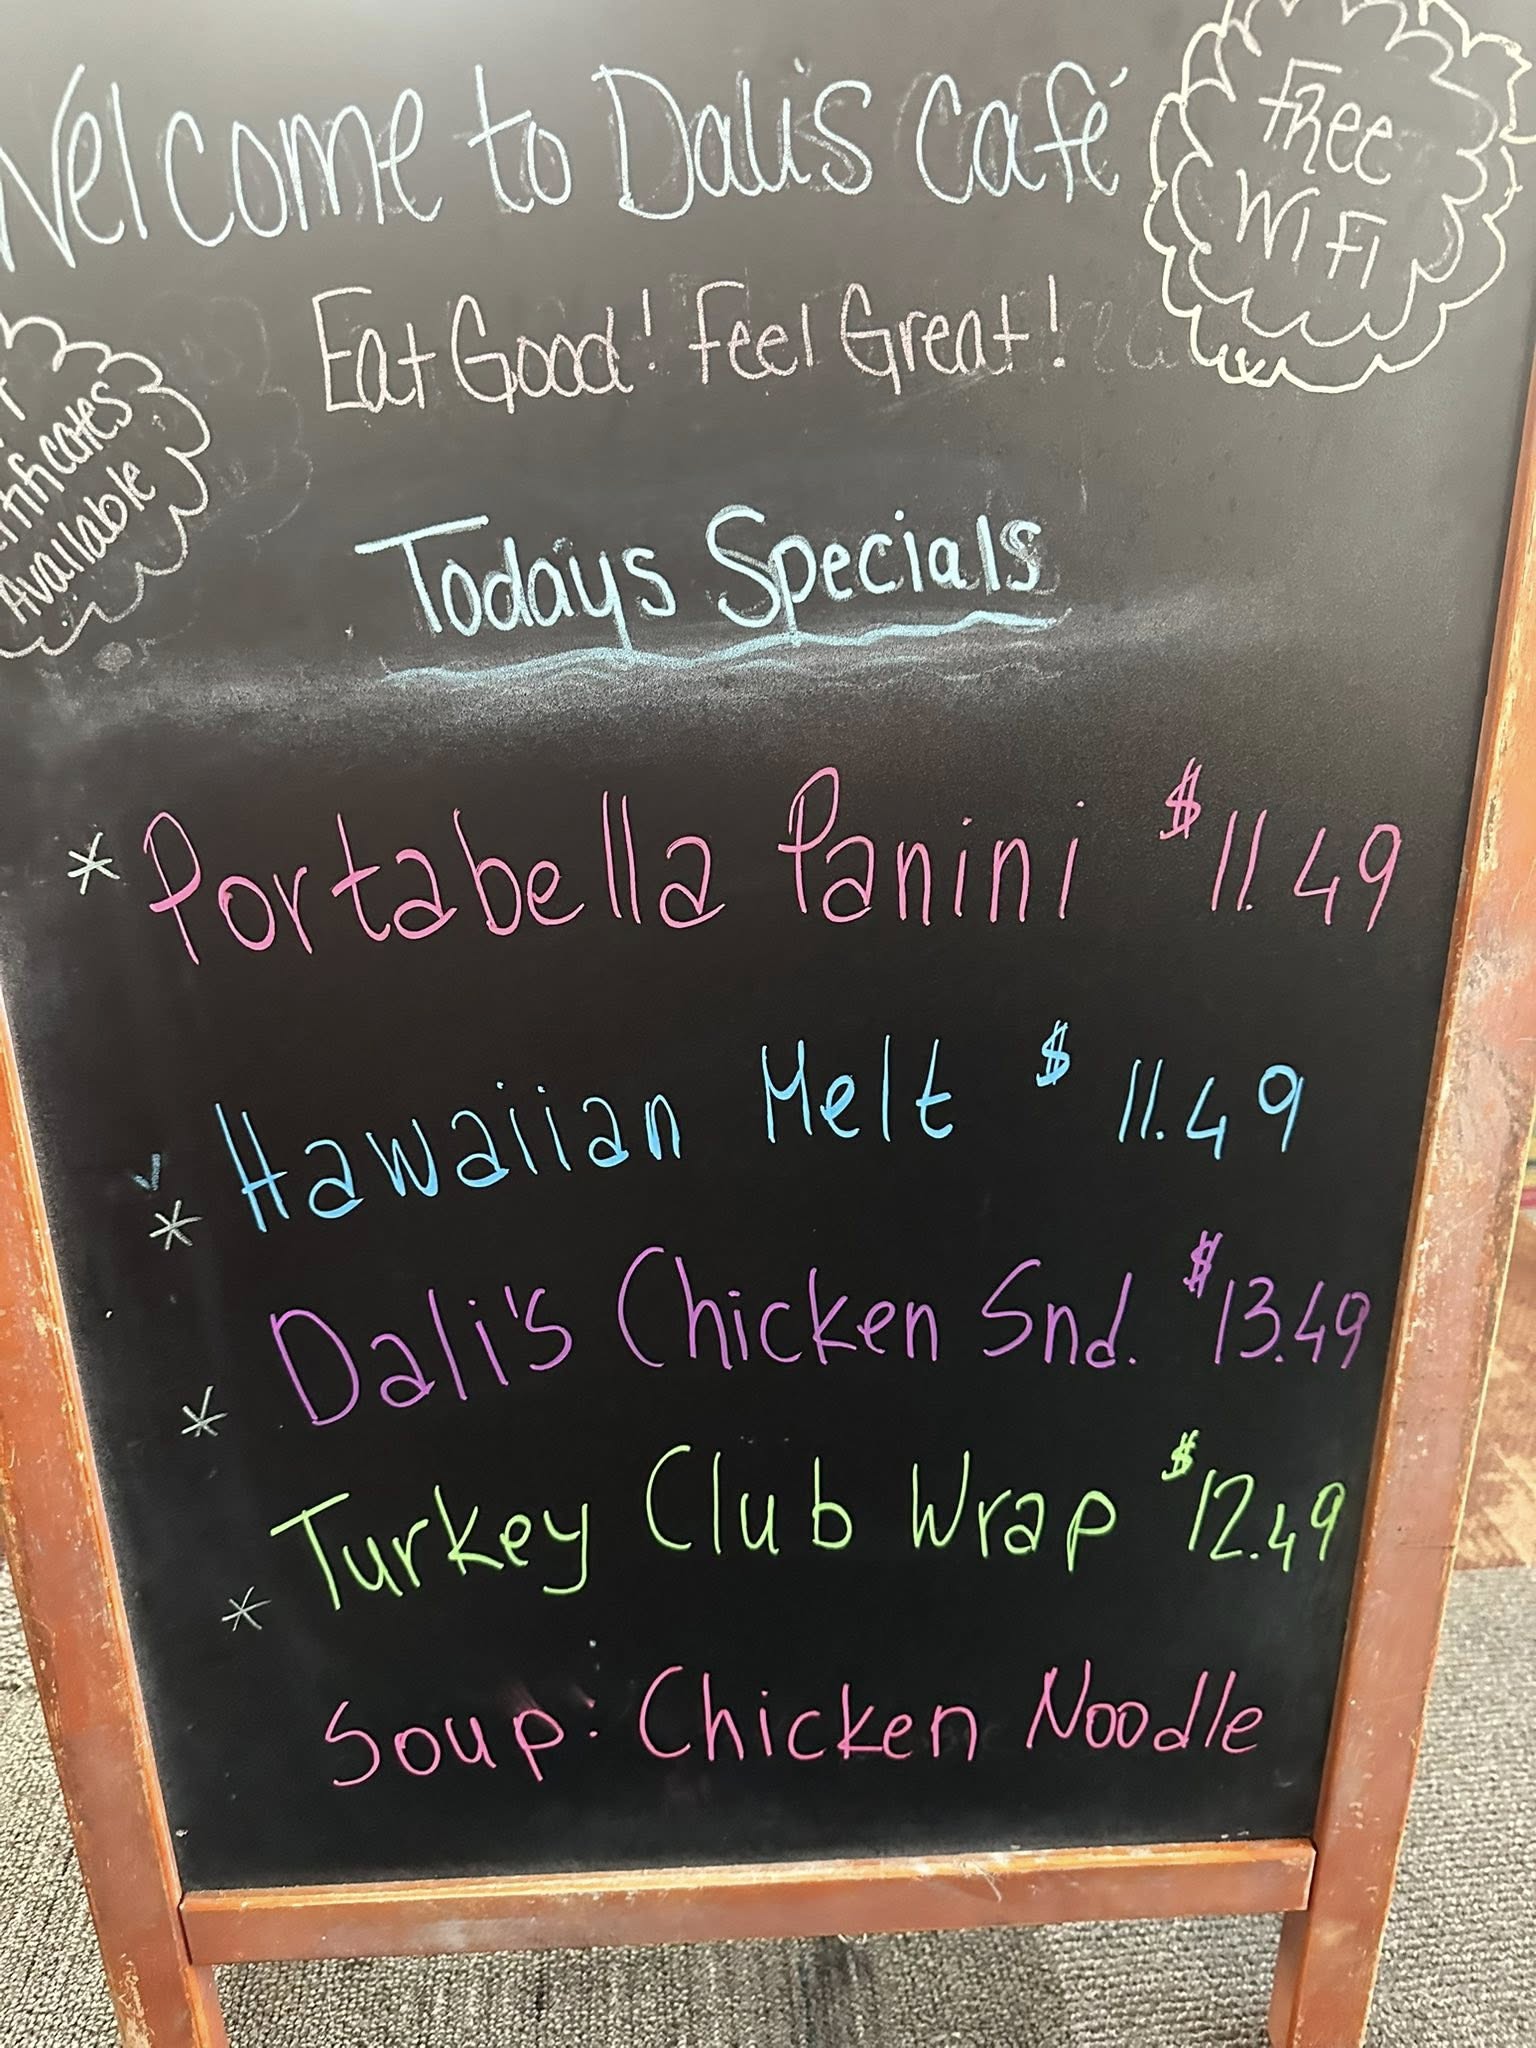 Welcome to Dali's Café
Free
WiFi
Eat Good! Feel Great!
Certificates
Available
Todays Specials
* Portabella Panini $11.49
* Hawaiian Melt $11.49
* Dali's Chicken Snd. $13.49
* Turkey Club Wrap $12.49
Soup: Chicken Noodle